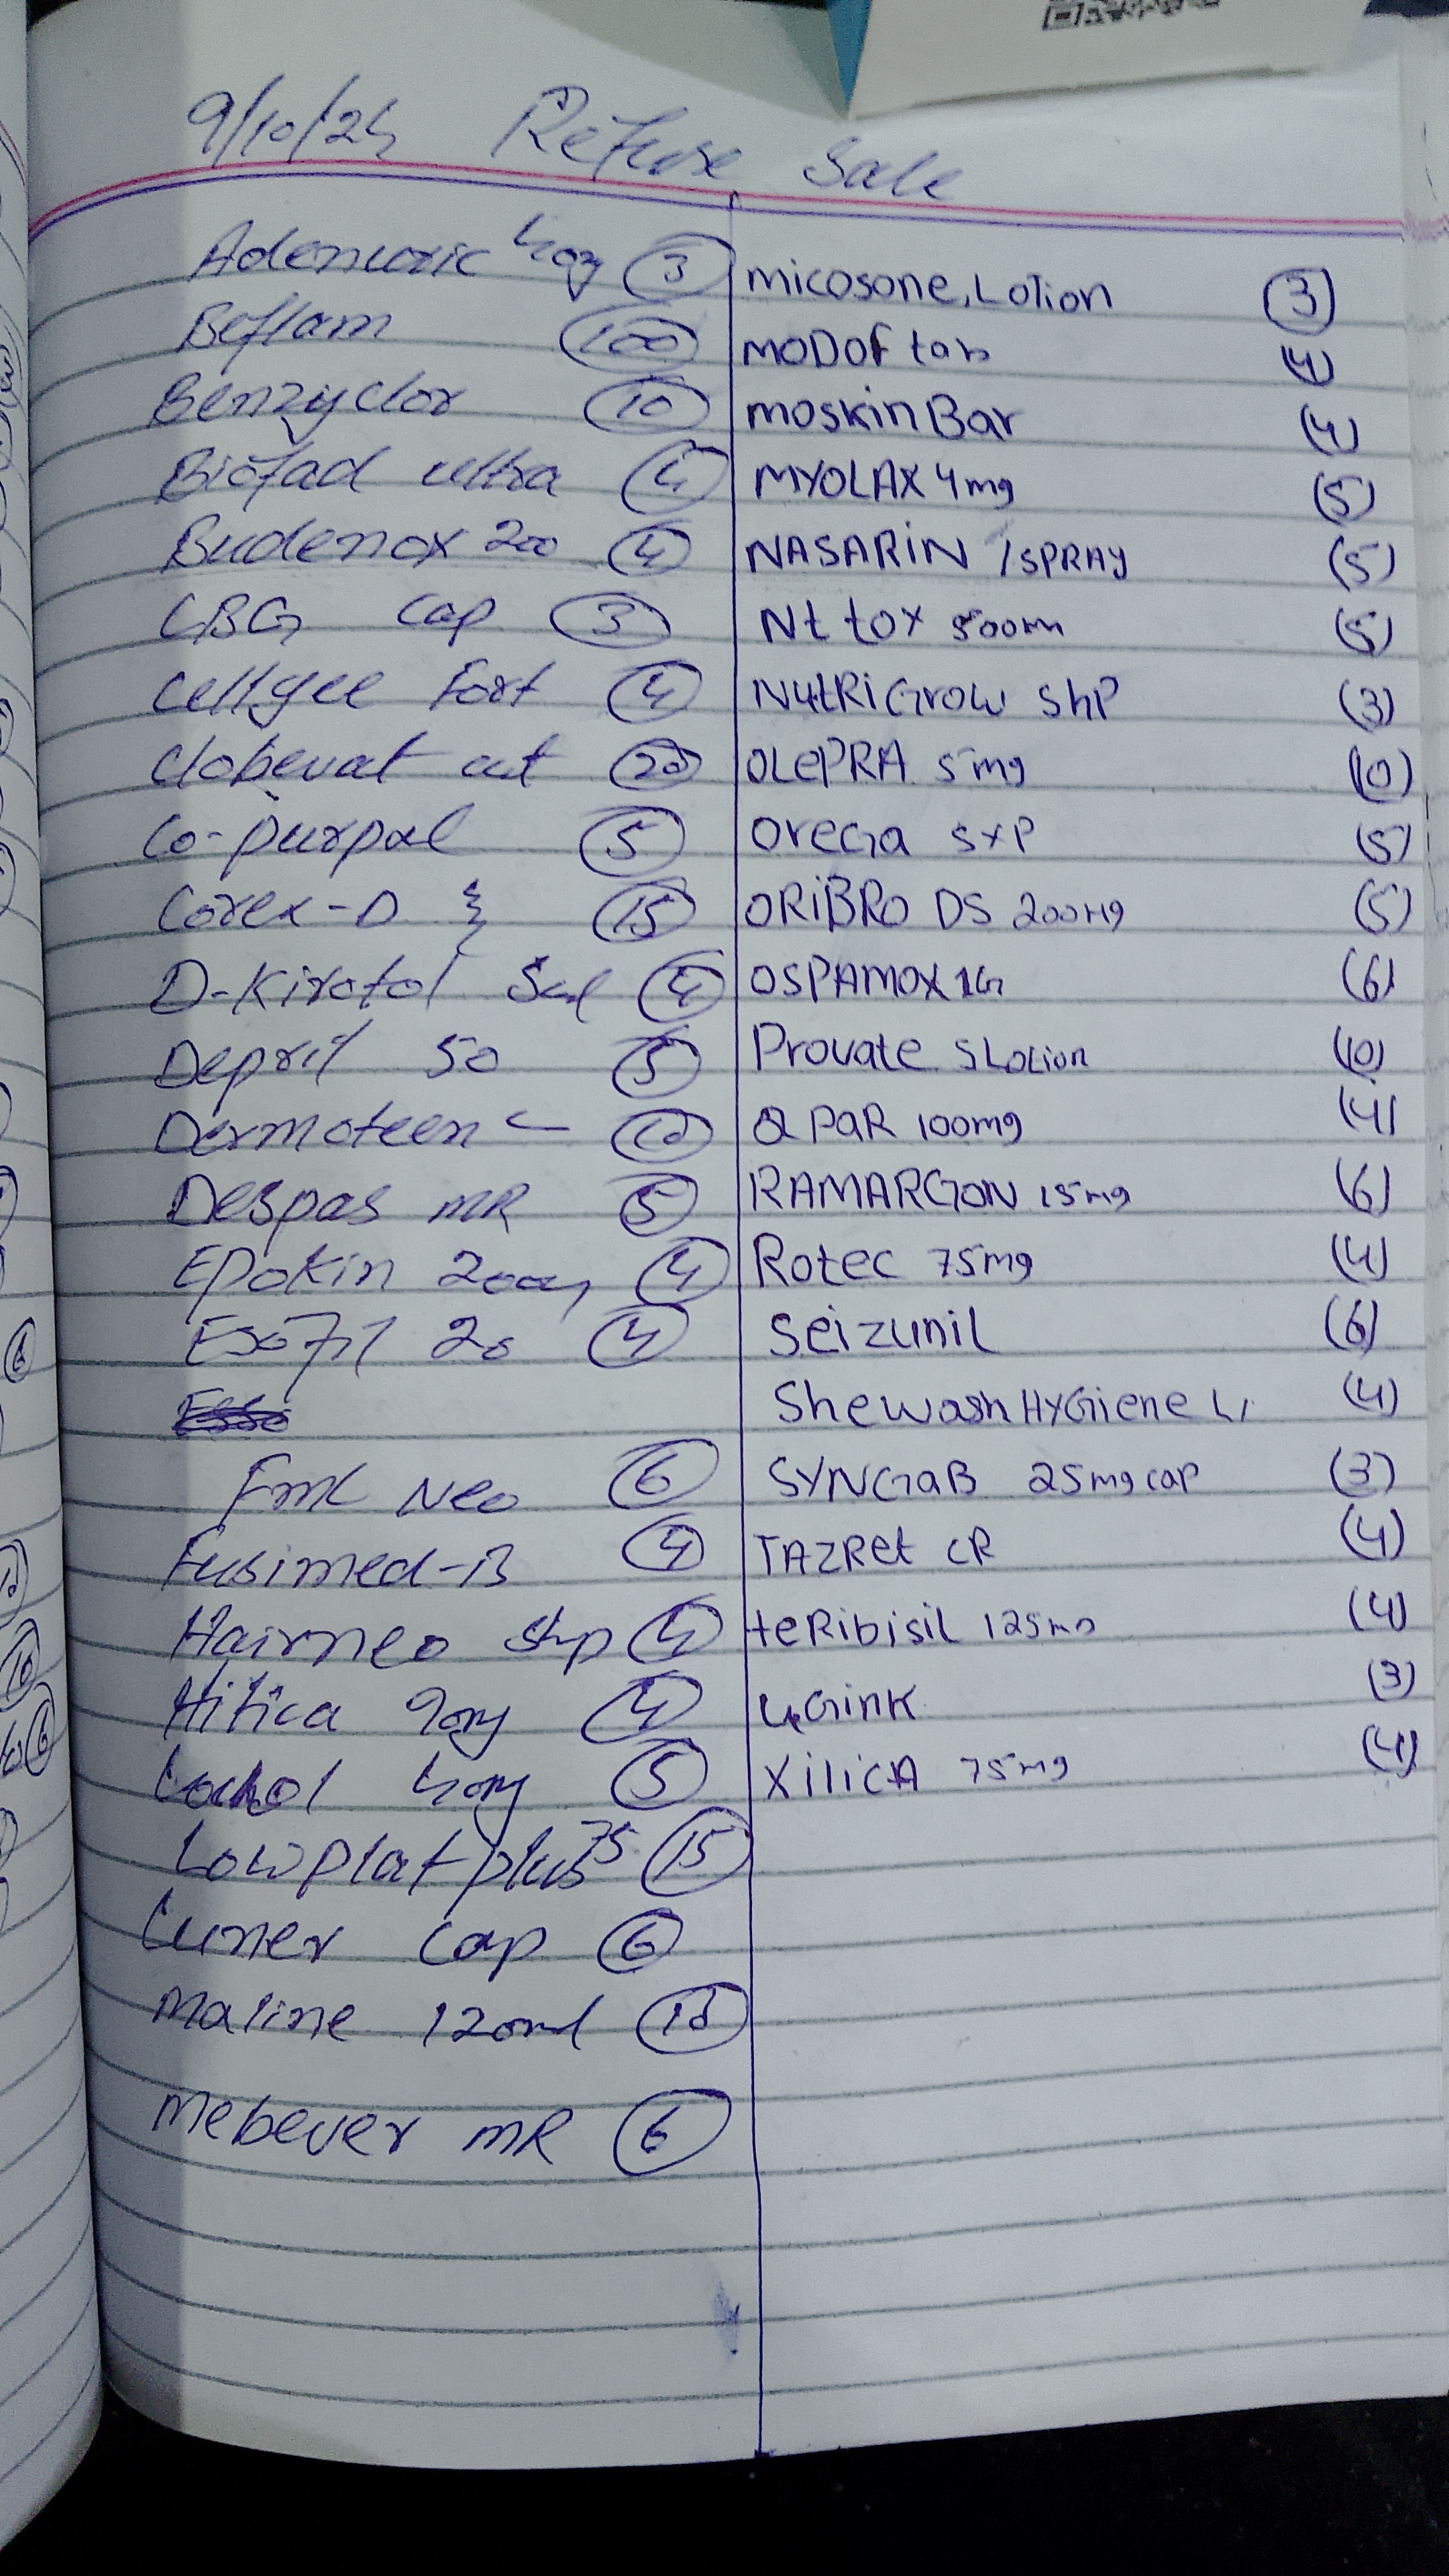 9/10/24 Refuse Sale
Adenuric 40mg 3
Beflam 100
Benzyclor 10
Biofad ultra 4
Budenox 200 4
CBG cap 3
Cellgee Fort 4
Clobevat 20
Co-purpal 5
Corex-D 15
D-Kirotol 4
Depril 50 5
Dermoteen 10
Despas MR 5
Epokin 4
Esofil 20 4
Fml Neo 6
Fusimed-B 4
Hairneo shp 4
Hitica 90mg 4
40mg 5
Lowplat plus 75 15
Cuner Cap 6
Maline 120ml 10
Mebever MR 6
micosone, Lotion 3
MODOf tab (4)
moskin Bar (4)
MYOLAX 4mg (5)
NASARIN /SPRAY (5)
Nt tox (5)
NutRiGrow ShP (3)
OLePRA 5mg (10)
OreGa (5)
ORiBRO DS 200mg (5)
OSPAMOX 1G (6)
Provate SLotion (10)
Q PaR 100mg (4)
RAMARGON 15mg (6)
Rotec 75mg (4)
Seizunil (6)
Shewash HYGiene (4)
SYNGaB 25mg cap (3)
TAZRet CR (4)
teRibisil 125mg (4)
uGink (3)
XiliCA 75mg (4)